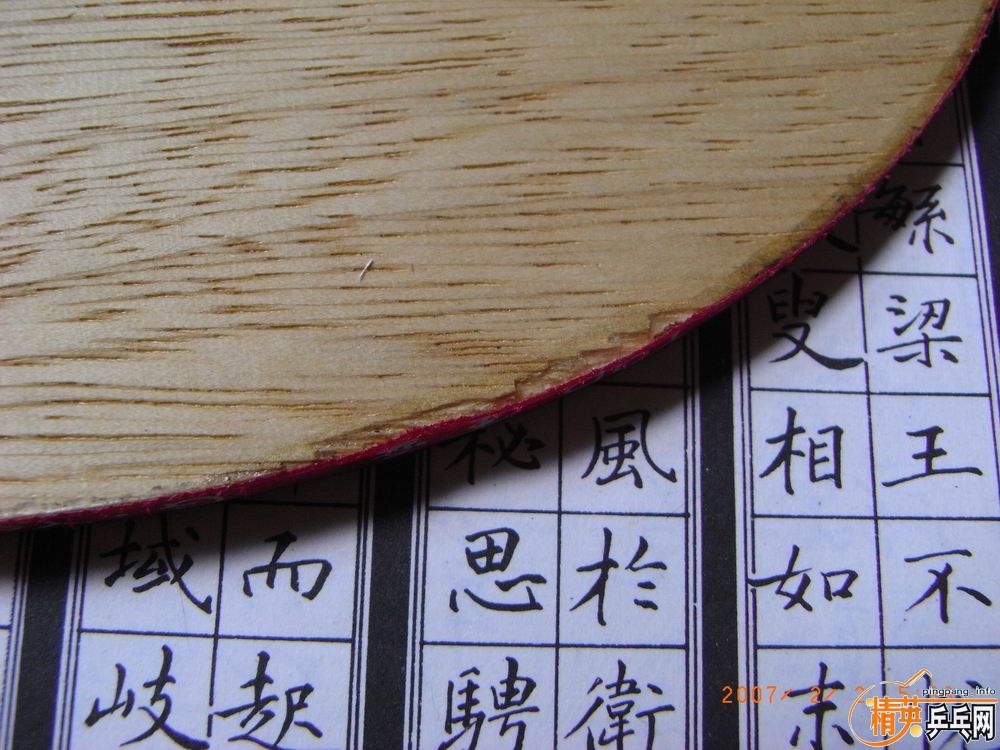 梁王不
叟相如末
風於衛
思騁
而起
域岐
2007/ 2/
pingpang.info
精英乒乓网